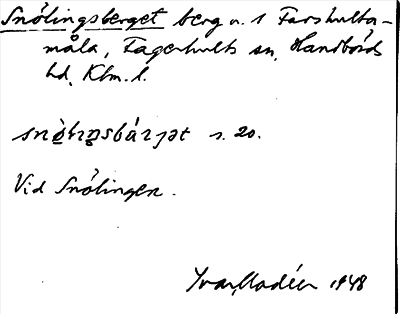 Snölingsberget berg n. 1 Farshulta-
måla, Fagerhults sn, Handbörds
hd, Klm. l.
s. 20.
Vid Snölingen.
Yvar Modéer 1948